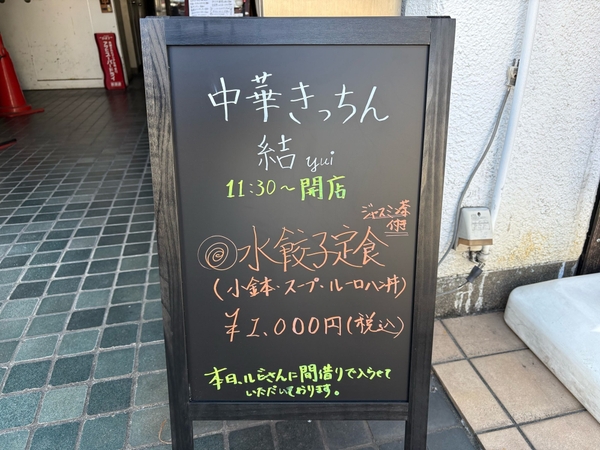 中華きっちん
結 yui
11:30〜開店
ジャスミン茶
付き
◎水餃子定食
(小鉢・スープ・ルーロハン丼)
¥1,000円(税込)
本日、ルビさんに間借りで入らせて
いただいております。